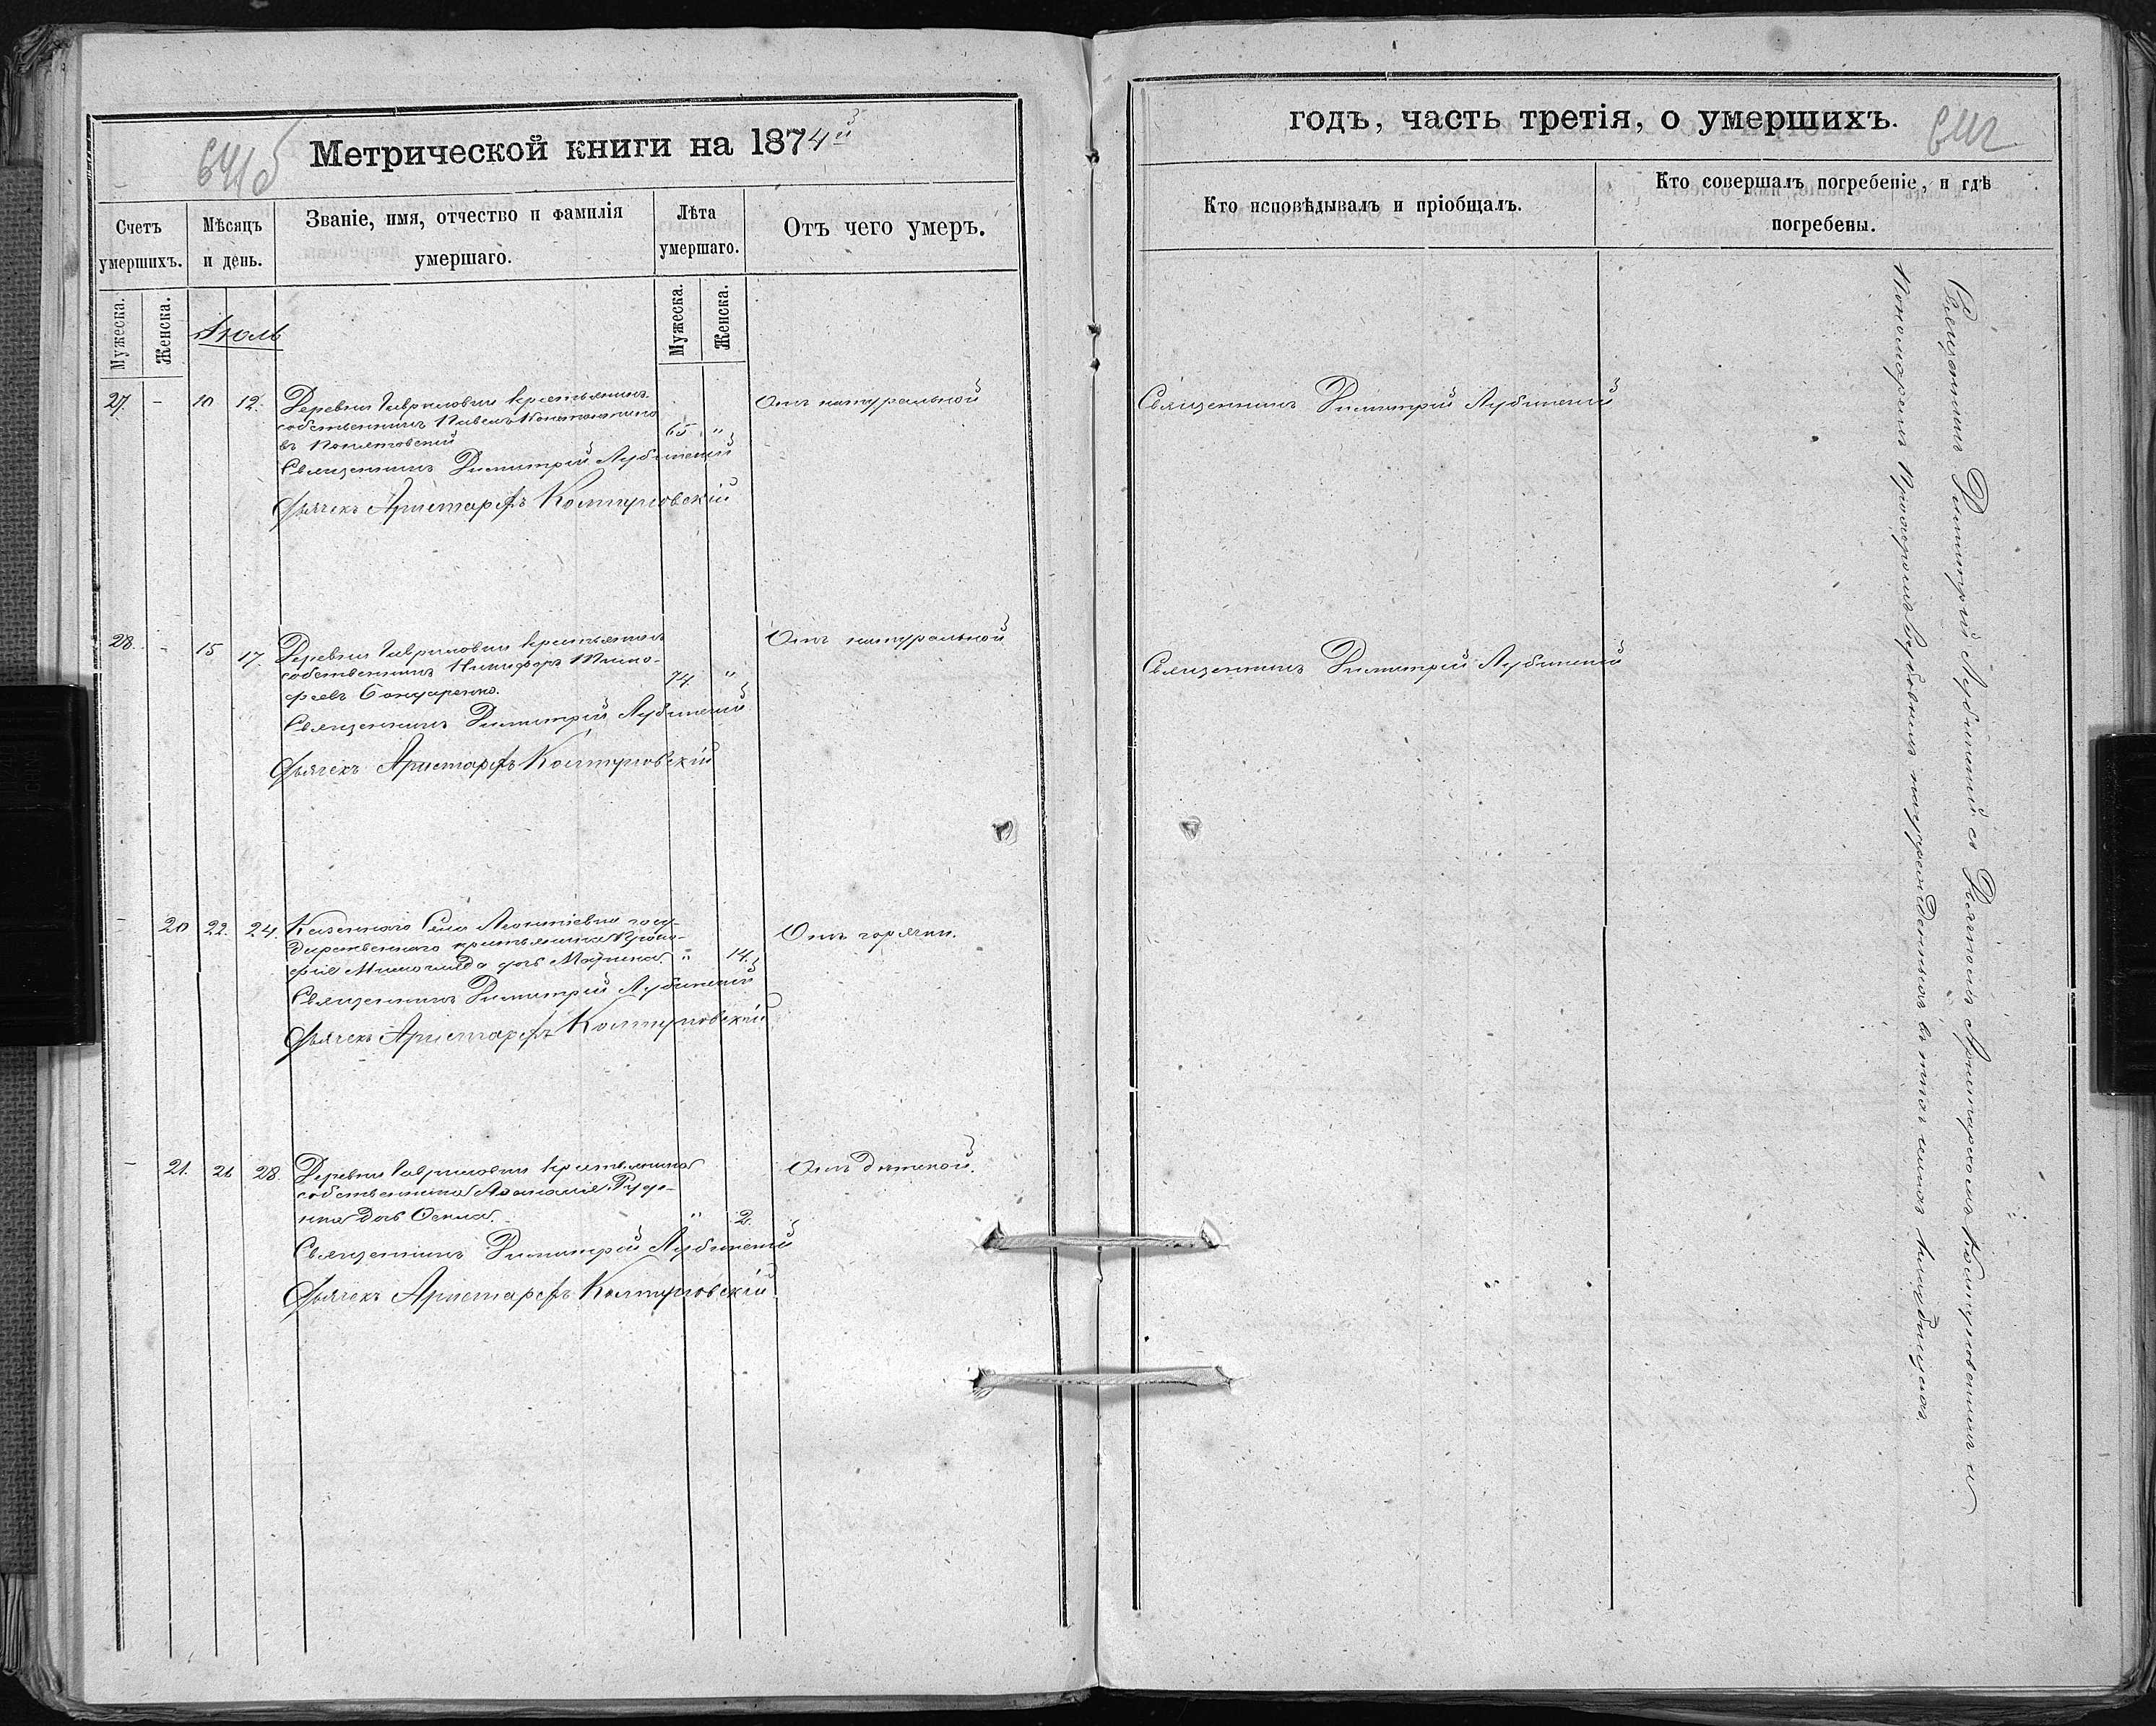 Метрической книги на 1874й
Счетъ умершихъ.
Мѣсяцъ и день.
Званіе, имя, отчество и фамилія умершаго.
Лѣта умершаго.
Отъ чего умеръ.
Мужеска.
Женска.
Июль
Мужеска.
Женска.
27. - 10 12. Деревни Гавриловки крестьянинъ
собственникъ Павелъ Константино
въ
65 "
Отъ натуральной
Священникъ Димитрій Лубинскій
Дьячекъ Аристархъ Колтуновскій
28. - 15 17. Деревни Гавриловки крестьянинъ
собственникъ Никифоръ Тимо-
феевъ Бондаренко.
74. "
Отъ натуральной
Священникъ Димитрій Лубинскій
Дьячекъ Аристархъ Колтуновскій
- 20 22. 24. Казеннаго Села Леонтіевки госу-
дарственнаго крестьянина
дочь Марина.
" 14.
Отъ горячки.
Священникъ Димитрій Лубинскій
Дьячекъ Аристархъ Колтуновскій
- 21. 26 28. Деревни Гавриловки крестьянина
собственника Афанасія Руде-
нка дочь
" 2.
Отъ дѣтской.
Священникъ Димитрій Лубинскій
Дьячекъ Аристархъ Колтуновскій
годъ, часть третія, о умершихъ.
Кто исповѣдывалъ и пріобщалъ.
Кто совершалъ погребеніе, и гдѣ
погребены.
Священникъ Димитрій Лубинскій
Священникъ Димитрій Лубинскій
Священникъ Димитрій Лубинскій съ Дьячкомъ Аристархомъ Колтуновскимъ и
Пономаремъ Прохоромъ Вербовымъ на учрежденныхъ въ тѣхъ селахъ кладбищахъ.